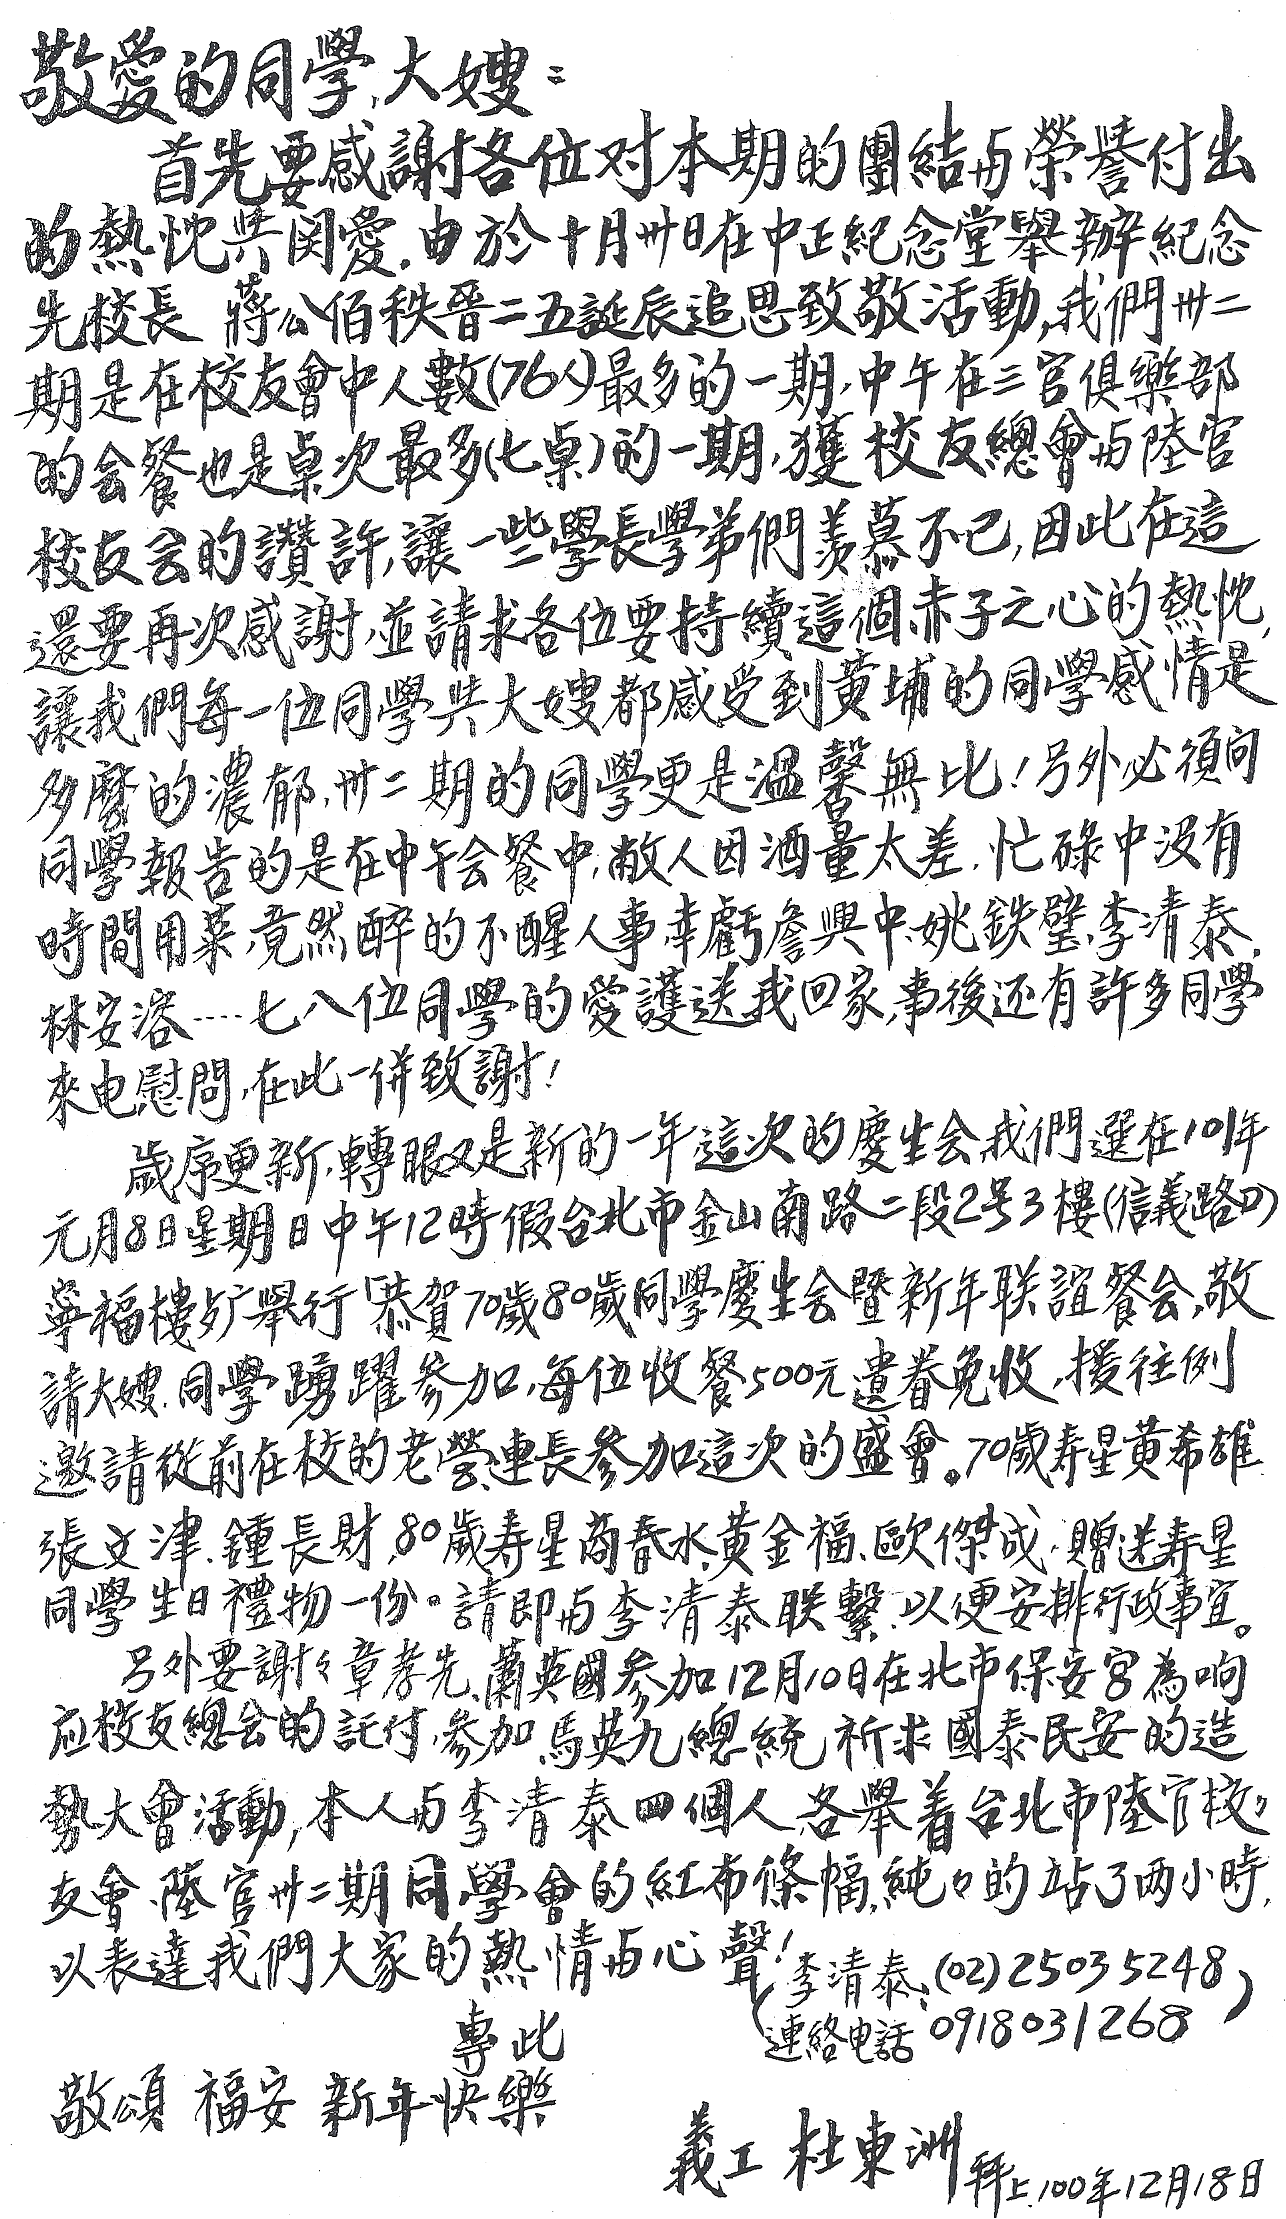 敬愛的同學、大嫂：
首先要感謝各位对本期的團結与榮譽付出
的熱忱與関愛。由於十月卅日在中正紀念堂舉辦紀念
先校長 蔣公佰秩晉二五誕辰追思致敬活動，我們卅二
期是在校友會中人數(76人)最多的一期，中午在三官俱樂部
的会餐也是桌次最多(七桌)的一期，獲校友總會与陸官
校友会的讚許，讓一些學長學弟們羨慕不已，因此在這
還要再次感謝，並請求各位要持續這個赤子之心的熱忱，
讓我們每一位同學與大嫂都感受到黃埔的同學感情是
多麼的濃郁，卅二期的同學更是溫馨無比！另外必須向
同學報告的是在中午会餐中，敝人因酒量太差，忙碌中沒有
時間用菜，竟然醉的不醒人事，幸虧詹興中、姚鉄壁、李清泰、
林安溶……七八位同學的愛護送我回家，事後还有許多同學
來电慰問，在此一併致謝！
歲序更新，轉眼又是新的一年，這次的慶生会，我們選在101年
元月8日星期日中午12時假台北市金山南路二段2号3樓(信義路口)
寧福樓歺廳舉行「恭賀70歲80歲同學慶生会暨新年联誼餐会，敬
請大嫂、同學踴躍參加，每位收餐500元遺眷免收，援往例
邀請從前在校的老營、連長參加這次的盛會。70歲寿星黃希雄
張文津、鍾長財，80歲寿星商春水、黃金福、歐傑成，贈送寿星
同學生日禮物一份。請即与李清泰联繫，以便安排行政事宜。
另外要謝々章孝先、蕭英國參加12月10日在北市保安宮為响
应校友總会的託付，參加馬英九總統祈求國泰民安的造
勢大會活動，本人与李清泰四個人，各舉着台北市陸官校
友會、陸官卅二期同學會的紅布條幅，純々的站了两小時，
以表達我們大家的熱情与心聲！
(李清泰：(02)25035248
連絡电話 0918031268)
專此
敬頌 福安 新年快樂
義工 杜東洲 拜上 100年12月18日